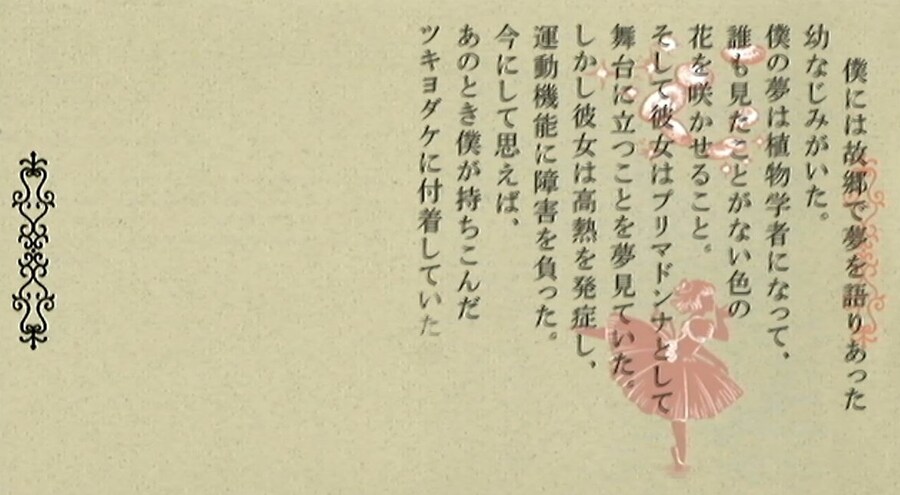 僕には故郷で夢を語りあった
幼なじみがいた。
僕の夢は植物学者になって、
誰も見たことがない色の
花を咲かせること。
そして彼女はプリマドンナとして
舞台に立つことを夢見ていた。
しかし彼女は高熱を発症し、
運動機能に障害を負った。
今にして思えば、
あのとき僕が持ちこんだ
ツキヨダケに付着していた